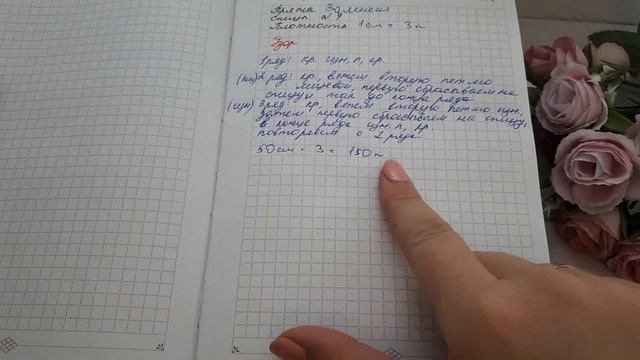 Пряжа
Спицы №
Плотность 1см = 3п
Узор
1 ряд: кр. изн. п, кр.
(лиц) 2 ряд: кр, вяжем вторую петлю
лицевой, первую сбрасываем на
спицу и так до конца ряда
(изн) 3 ряд: кр. вяжем вторую петлю изн,
затем первую сбрасываем на спицу,
в конце ряда изн. п, кр.
повторяем с 2 ряда
50см · 3 = 150п